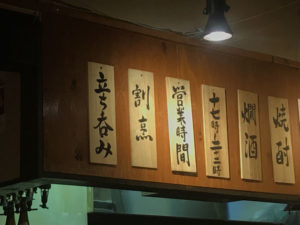 立ち呑み
割烹
営業時間
十七時〜二三時
燗酒
焼酎